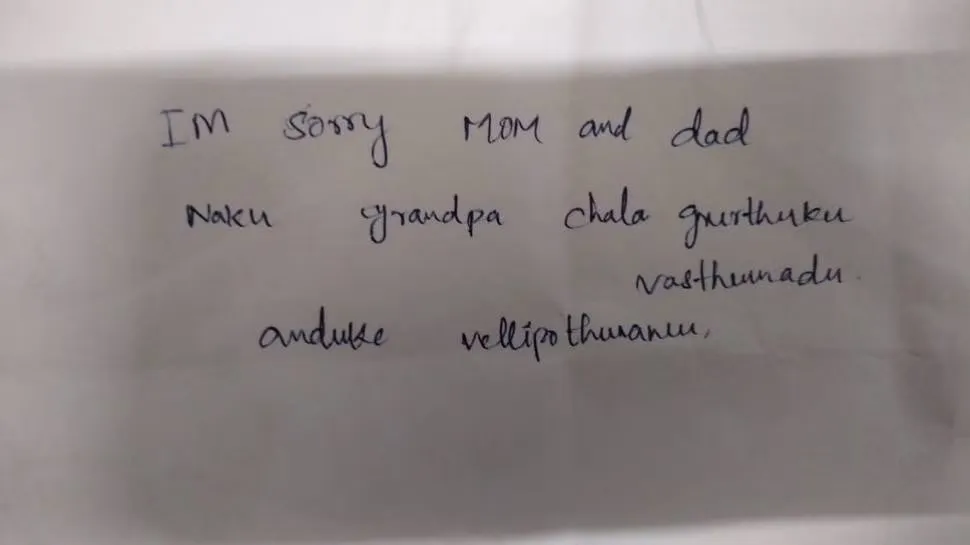 IM sorry MOM and dad
Naku grandpa chala gurthuku
vasthunnadu.
anduke vellipothunanu.